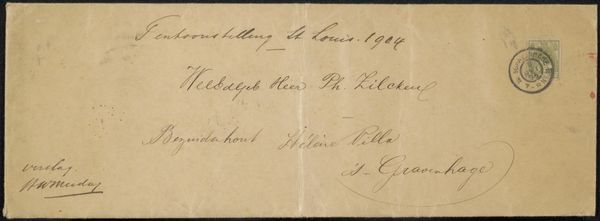 Tentoonstelling St. Louis. 1904
WelEdGeb Heer Ph. Zilcken
Bezuidenhout Hélène Villa
's-Gravenhage
verslag